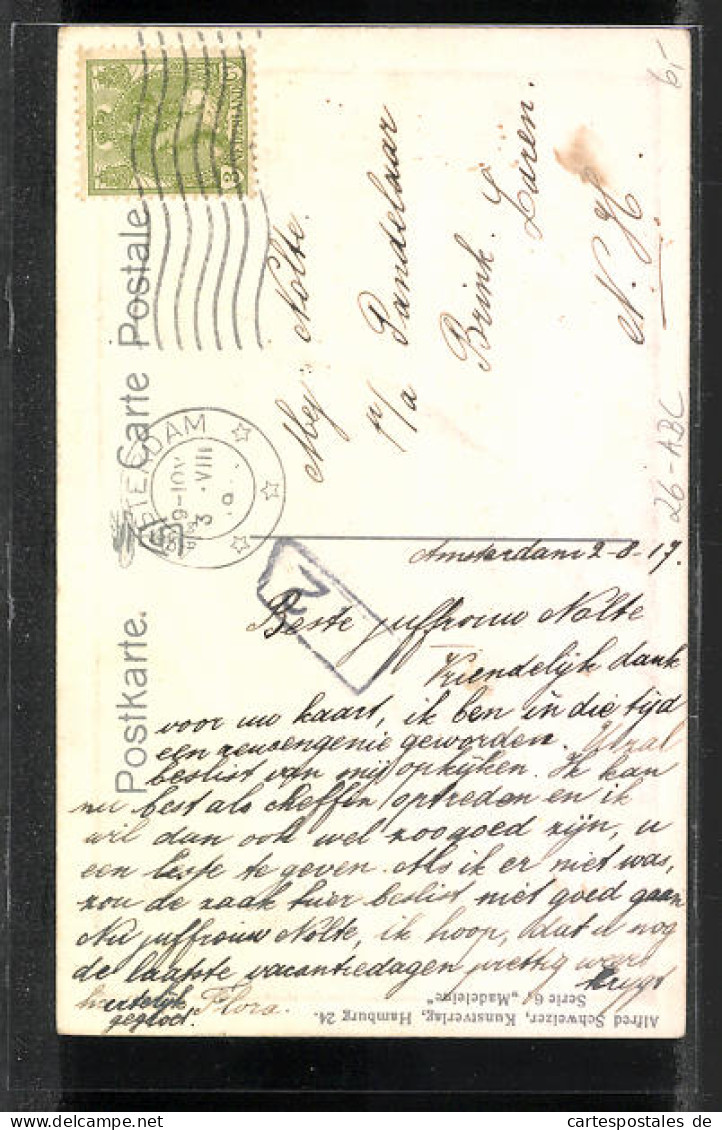 Postkarte. Carte Postale
AMSTERDAM
9-10V
3 VIII
NEDERLAND
3
Mej: Nolte.
p/a Pandelaar
Brink. Laren.
N. H.
6,-
26-ABC
Amsterdam 2-8-17.
Beste juffrouw Nolte
Vriendelijk dank
voor uw kaart, ik ben in die tijd
een reuzengenie geworden. U zal
beslist van mij opkijken. Ik kan
nu best als cheffin optreden en ik
wil dan ook wel zoo goed zijn, u
een lesje te geven. Als ik er niet was,
zou de zaak hier beslist niet goed gaan
Nu juffrouw Nolte, ik hoop, dat u nog
de laatste vacantiedagen prettig weer
krijgt
hartelijk
gegroet. Flora.
Alfred Schweizer, Kunstverlag, Hamburg 24.
Serie 6 „Madeleine"
cartespostales de